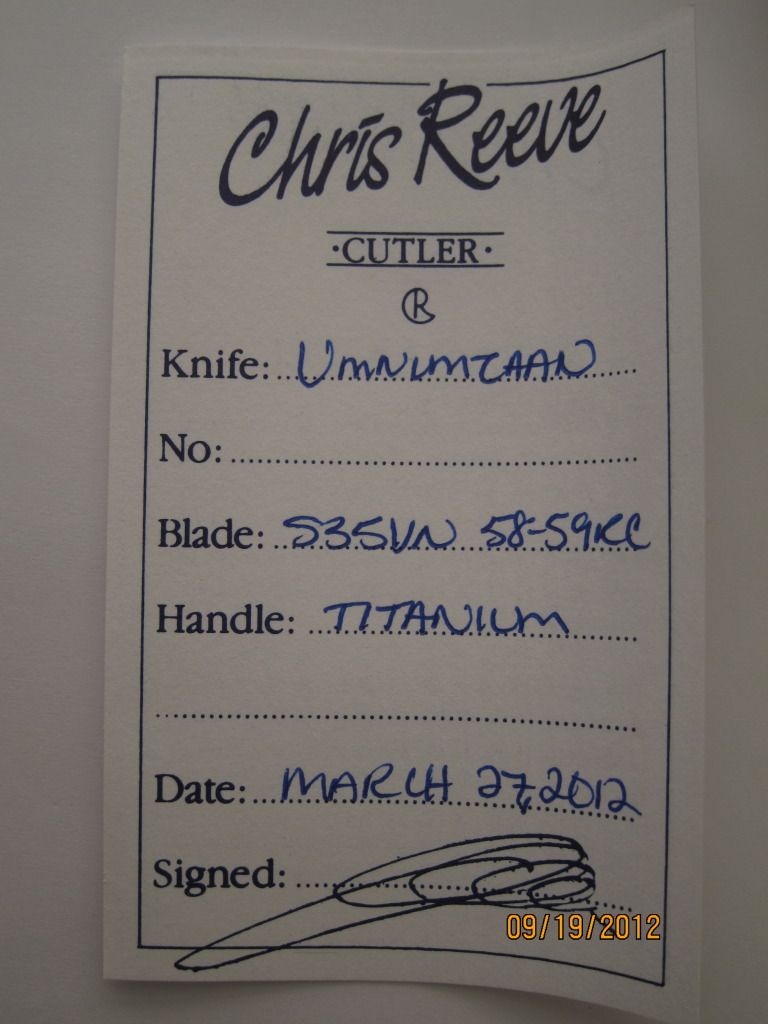 Chris Reeve
·CUTLER·
CR
Knife: UMNUMZAAN
No:
Blade: S35VN 58-59RC
Handle: TITANIUM
Date: MARCH 27, 2012
Signed:
09/19/2012